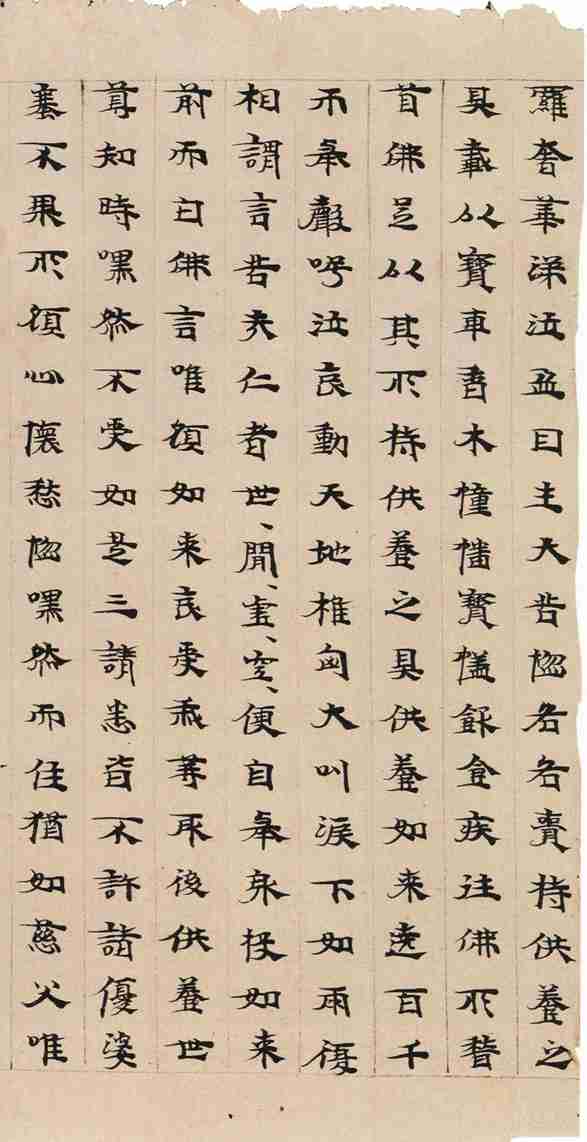 羅奢等涕泣盈目生大苦惱各各賷持供養之
具載以寶車香木幢幡寶盖飲食疾往佛所稽
首佛足以其所持供養之具供養如来遶百千
匝舉聲号泣哀動天地椎匈大叫淚下如雨復
相謂言苦哉仁者世、間、虛、空、便自舉身投如来
前而白佛言唯願如来哀受我等最後供養世
尊知時嘿然不受如是三請悉皆不許諸優婆
塞不果所願心懷愁惱嘿然而住猶如慈父唯